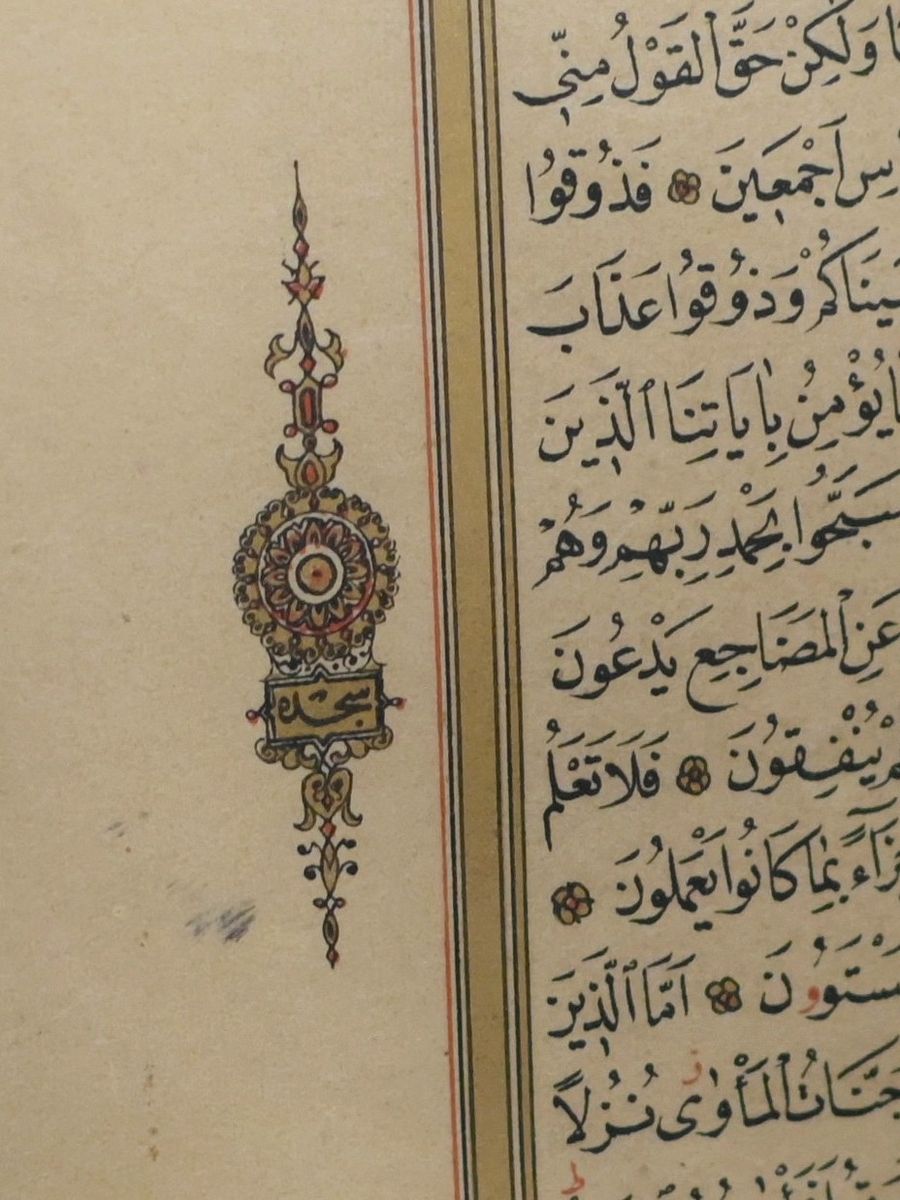 وَلَكِنْ حَقَّ ٱلْقَوْلُ مِنِّي
اَجْمَعِينَ فَذُوقُوا
وَذُوقُوا عَذَابَ
يُؤْمِنُ بِاٰيَاتِنَا ٱلَّذِينَ
سَبَّحُوا بِحَمْدِ رَبِّهِمْ وَهُمْ
عَنِ ٱلْمَضَاجِعِ يَدْعُونَ
يُنْفِقُونَ فَلَا تَعْلَمُ
بِمَا كَانُوا يَعْمَلُونَ
اَمَّا ٱلَّذِينَ
جَنَّاتُ ٱلْمَأْوٰى نُزُلاً
سجده